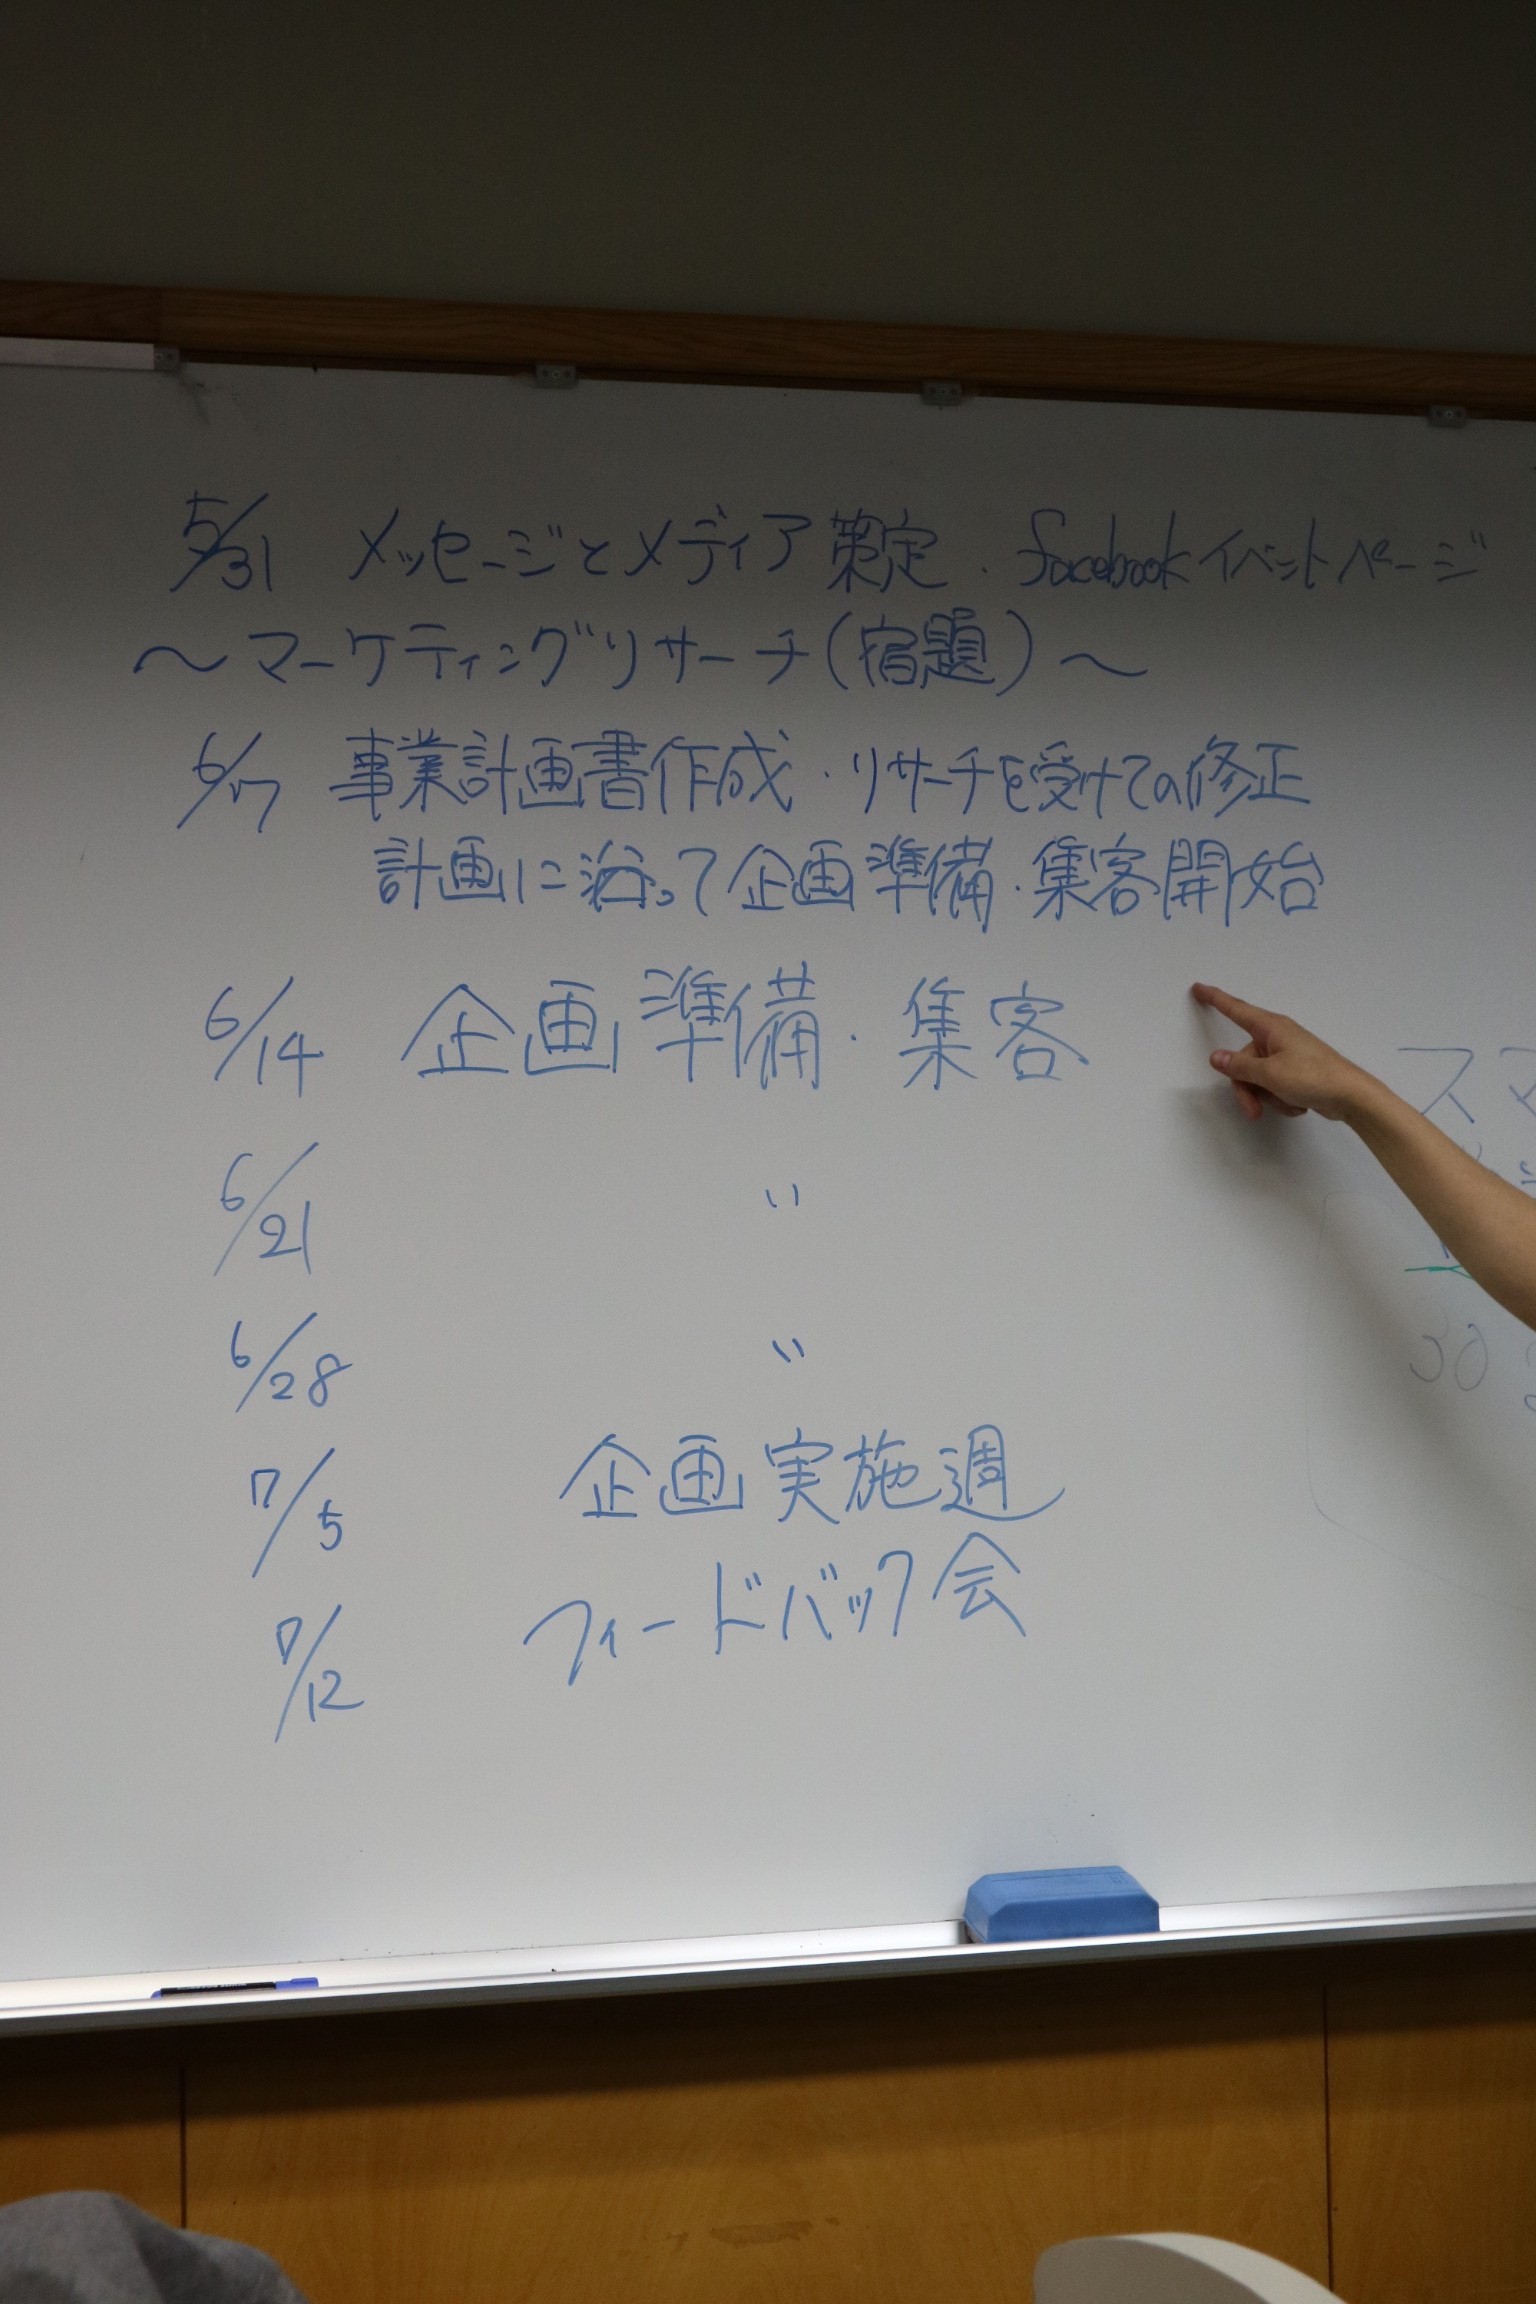 5/31 メッセージとメディア策定・facebookイベントページ
～マーケティングリサーチ(宿題)～
6/7 事業計画書作成・リサーチを受けての修正
計画に沿って企画準備・集客開始
6/14 企画準備・集客
6/21 〃
6/28 〃
7/5 企画実施週
7/12 フィードバック会
スマ
30